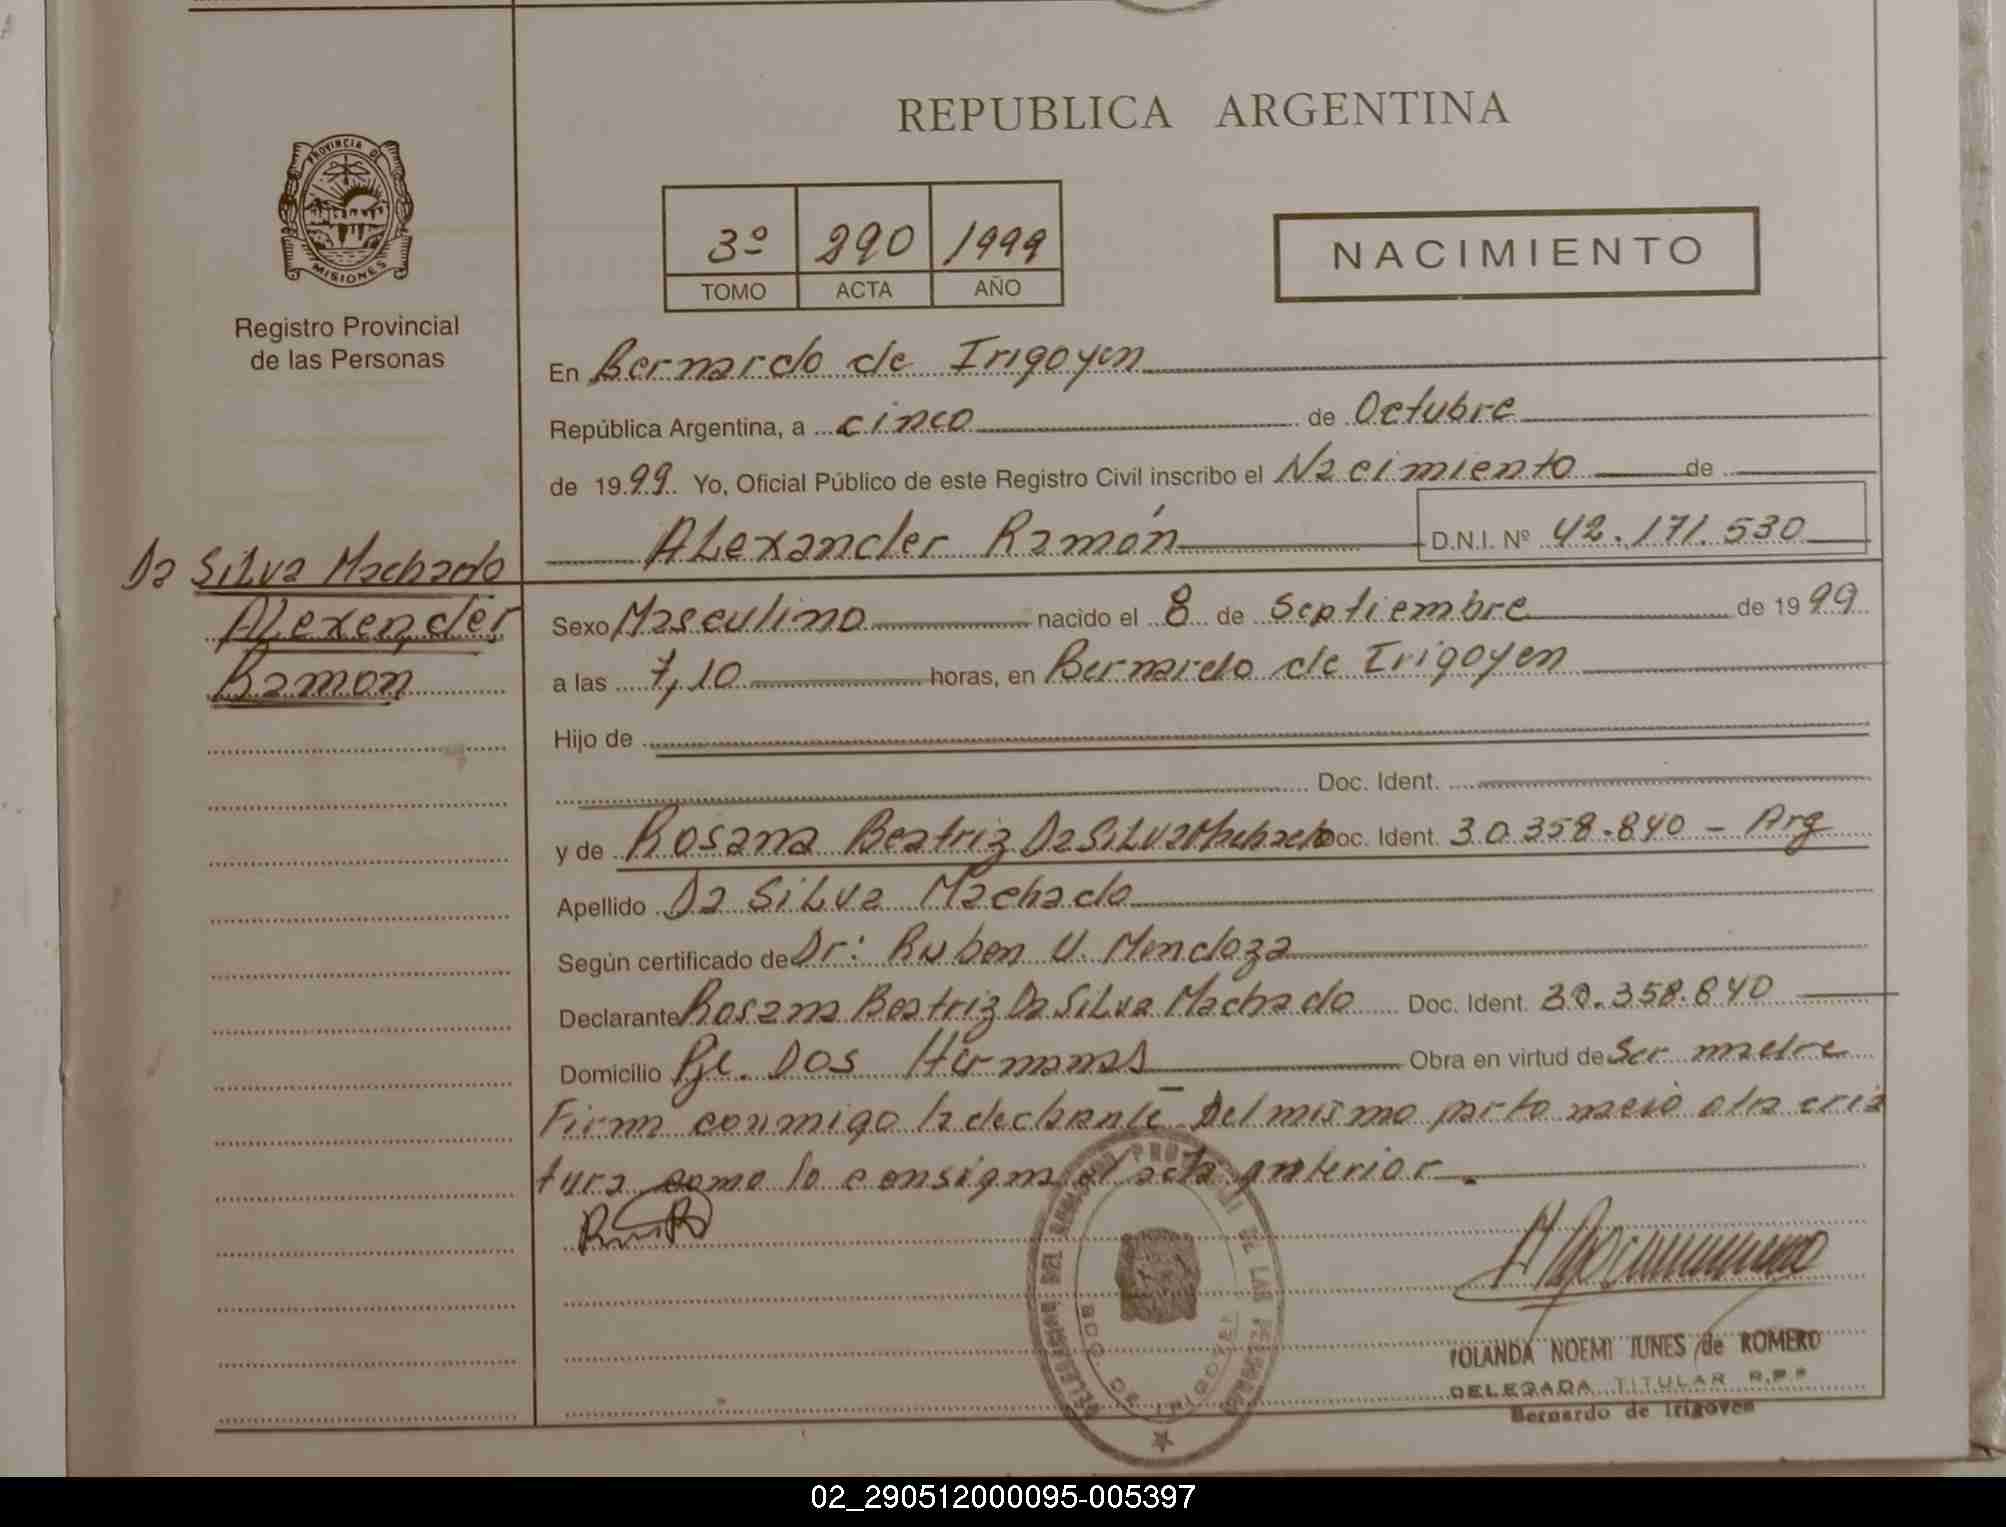 REPUBLICA ARGENTINA
PROVINCIA DE
MISIONES
Registro Provincial
de las Personas
3º 290 1999
TOMO ACTA AÑO
NACIMIENTO
En Bernardo de Irigoyen
República Argentina, a cinco de Octubre
de 1999 Yo, Oficial Público de este Registro Civil inscribo el Nacimiento de
ALexander Ramón D.N.I. Nº 42.171.530
Da SiLva Machado
ALexander
Ramon
Sexo Masculino nacido el 8 de Septiembre de 1999
a las 7,10 horas, en Bernardo de Irigoyen
Hijo de
Doc. Ident.
y de Rosana Beatriz Da SiLva Machado Doc. Ident. 30.358.840 - Arg
Apellido Da SiLva Machado
Según certificado de Dr: Ruben U. Mendoza
Declarante Rosana Beatriz Da SiLva Machado Doc. Ident. 30.358.840
Domicilio Pje. Dos Hermanas Obra en virtud de Ser madre
Firma conmigo la declarante - Del mismo parto nació otra cria
tura como lo consigna el acta anterior.
YOLANDA NOEMI JUNES de ROMERO
DELEGADA TITULAR R.P.P
Bernardo de Irigoyen
02_290512000095-005397